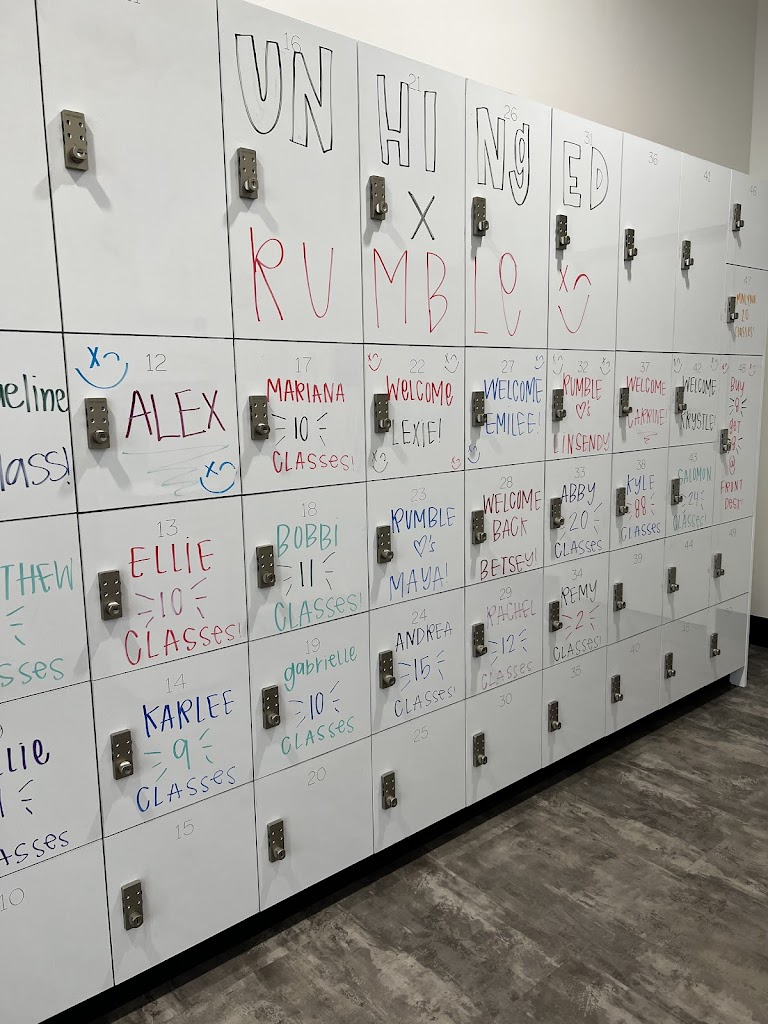 16
21
26
31
36
41
46
UN HI Ng ED
X
RU MB Le
47
20
CLASSES!
eline
lass!
12
ALEX
17
MARIANA
10
CLASSES!
22
WELCOME
LEXIE!
27
WELCOME
EMILEE!
32
RUMBLE
♡'s
LINSENDY
37
WELCOME
CARRINE!
42
WELCOME
KRYSTLE!
48
BUY
8
get
2
@
FRONT
DESK!
THEW
sses
13
ELLIE
10
CLASSES!
18
BOBBI
11
CLASSES!
23
RUMBLE
♡'s
MAYA!
28
WELCOME
BACK
BETSEY!
33
ABBY
20
CLASSES
38
KYLE
88
CLASSES
43
SALOMON
24
CLASSES!
49
llie
asses
14
KARLEE
9
CLASSES
19
gabrielle
10
CLASSES!
24
ANDREA
15
CLASSES!
29
RACHEL
12
CLASSES
34
REMY
2
CLASSES!
39
44
10
15
20
25
30
35
40